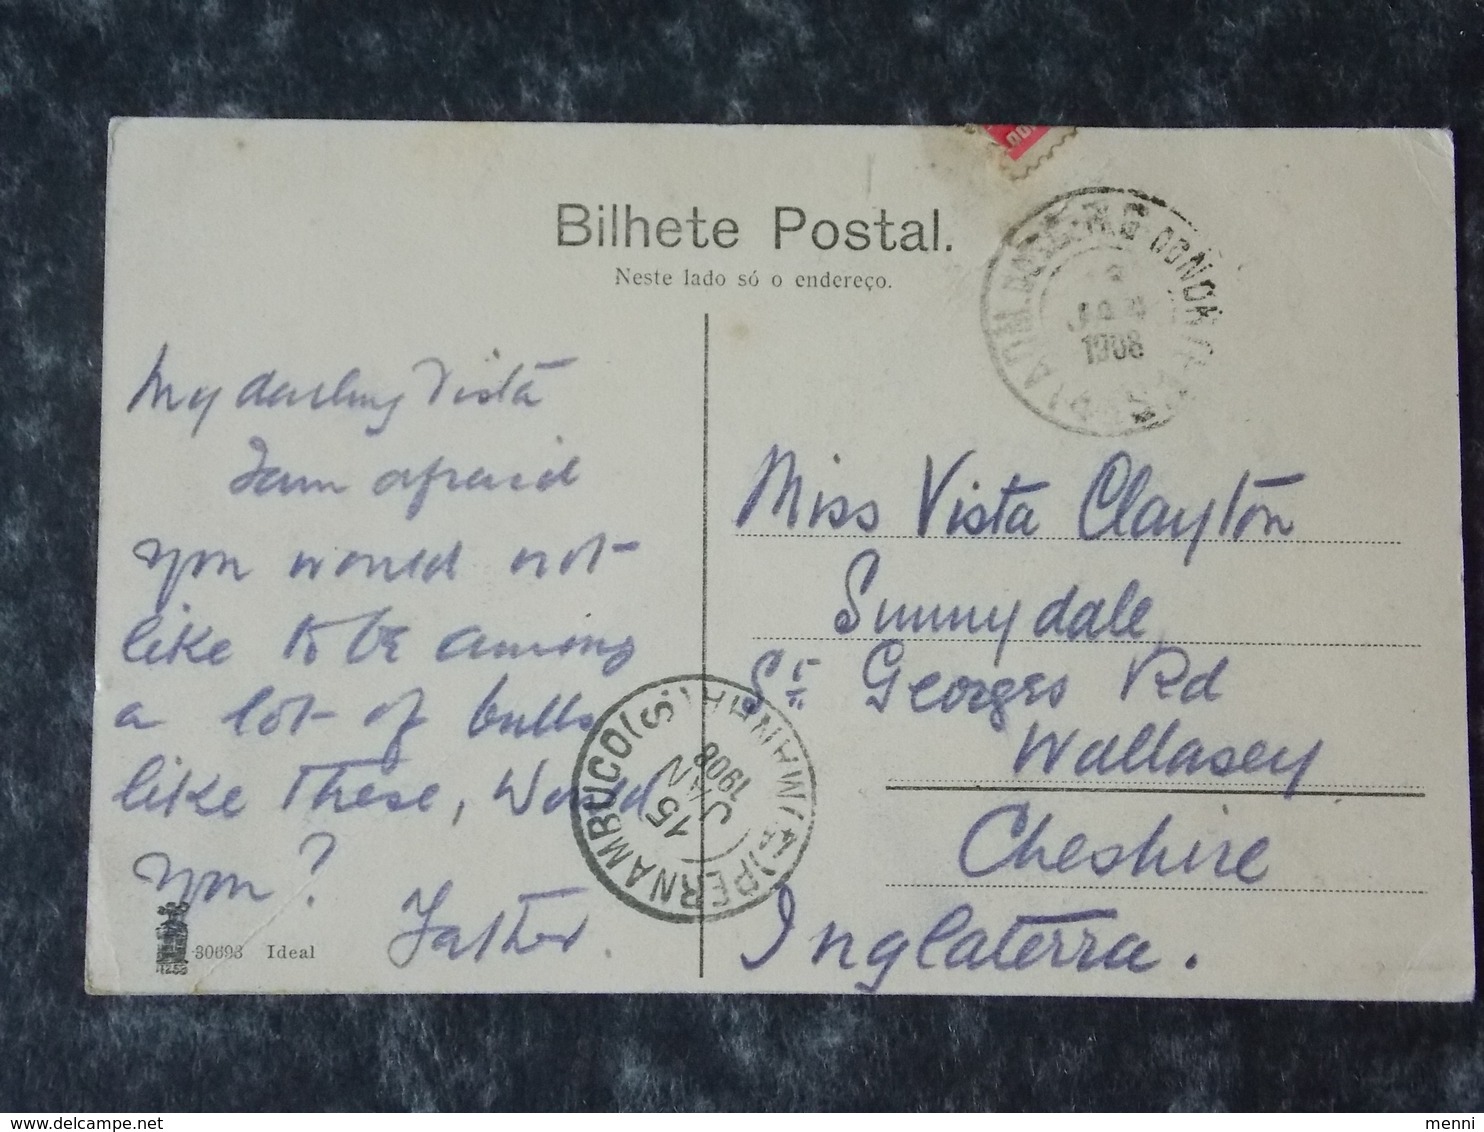 Bilhete Postal.
Neste lado só o endereço.
JAN
1908
My darling Vista
I am afraid
you would not
like to be among
a lot of bulls
like these, Would
you?
Father.
Miss Vista Clayton
Sunnydale
St Georges Rd
Wallasey
Cheshire
Inglaterra.
PERNAMBUCO (S.)
15
JAN
1908
30693 Ideal
www.delcampe.net
menni